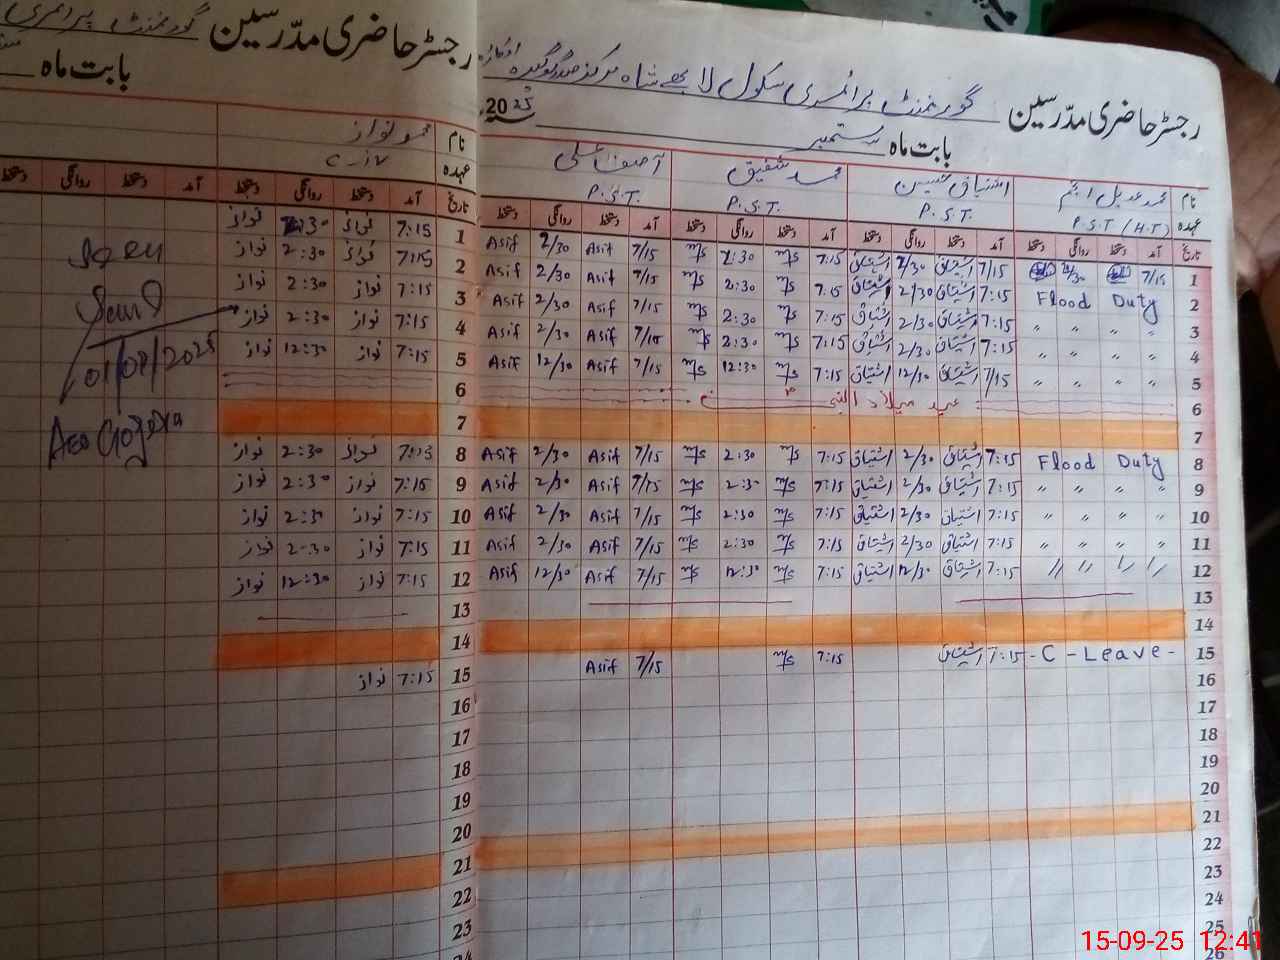 رجسٹر حاضری مدّرسین گورنمنٹ پرائمری سکول
بابت ماہ ستمبر 2025ء
نام محمد عدیل انجم اشتیاق حسین محمد شفیق آصف علی
عہدہ P.S.T (H.T) P.S.T. P.S.T. P.S.T.
تاریخ آمد دستخط روانگی دستخط آمد دستخط روانگی دستخط آمد دستخط روانگی دستخط آمد دستخط روانگی دستخط
1 7/15 2/30 7/15 اشتیاق 2/30 اشتیاق 7:15 m/s 2:30 m/s 7/15 Asif 2/30 Asif
2 Flood Duty 7:15 اشتیاق 2/30 اشتیاق 7:15 m/s 2:30 m/s 7/15 Asif 2/30 Asif
3 〃 〃 〃 〃 7:15 اشتیاق 2/30 اشتیاق 7:15 m/s 2:30 m/s 7/15 Asif 2/30 Asif
4 〃 〃 〃 〃 7:15 اشتیاق 2/30 اشتیاق 7:15 m/s 2:30 m/s 7/15 Asif 2/30 Asif
5 〃 〃 〃 〃 7/15 اشتیاق 12/30 اشتیاق 7:15 m/s 12:30 m/s 7/15 Asif 12/30 Asif
6 عید میلاد النبی
7
8 Flood Duty 7:15 اشتیاق 2/30 اشتیاق 7:15 m/s 2:30 m/s 7/15 Asif 2/30 Asif
9 〃 〃 〃 〃 7:15 اشتیاق 2/30 اشتیاق 7:15 m/s 2:30 m/s 7/15 Asif 2/30 Asif
10 〃 〃 〃 〃 7:15 اشتیاق 2/30 اشتیاق 7:15 m/s 2:30 m/s 7/15 Asif 2/30 Asif
11 〃 〃 〃 〃 7:15 اشتیاق 2/30 اشتیاق 7:15 m/s 2:30 m/s 7/15 Asif 2/30 Asif
12 〃 〃 〃 〃 7:15 اشتیاق 12/30 اشتیاق 7:15 m/s 12:30 m/s 7/15 Asif 12/30 Asif
13
14
15 - C - Leave - 7:15 اشتیاق 7:15 m/s 7/15 Asif
16
17
18
19
20
21
22
23
24
25
26
رجسٹر حاضری مدّرسین گورنمنٹ پرائمری
بابت ماہ
نام محمد نواز
عہدہ
تاریخ آمد دستخط روانگی دستخط آمد دستخط روانگی دستخط
1 7:15 نواز 2:30 نواز
2 7:15 نواز 2:30 نواز
3 7:15 نواز 2:30 نواز
4 7:15 نواز 2:30 نواز
5 7:15 نواز 12:30 نواز
6
7
8 7:15 نواز 2:30 نواز
9 7:15 نواز 2:30 نواز
10 7:15 نواز 2:30 نواز
11 7:15 نواز 2-30 نواز
12 7:15 نواز 12:30 نواز
13
14
15 7:15 نواز
16
17
18
19
20
21
22
23
24
Seen
01/09/2025
AEO Gogera
15-09-25 12:41